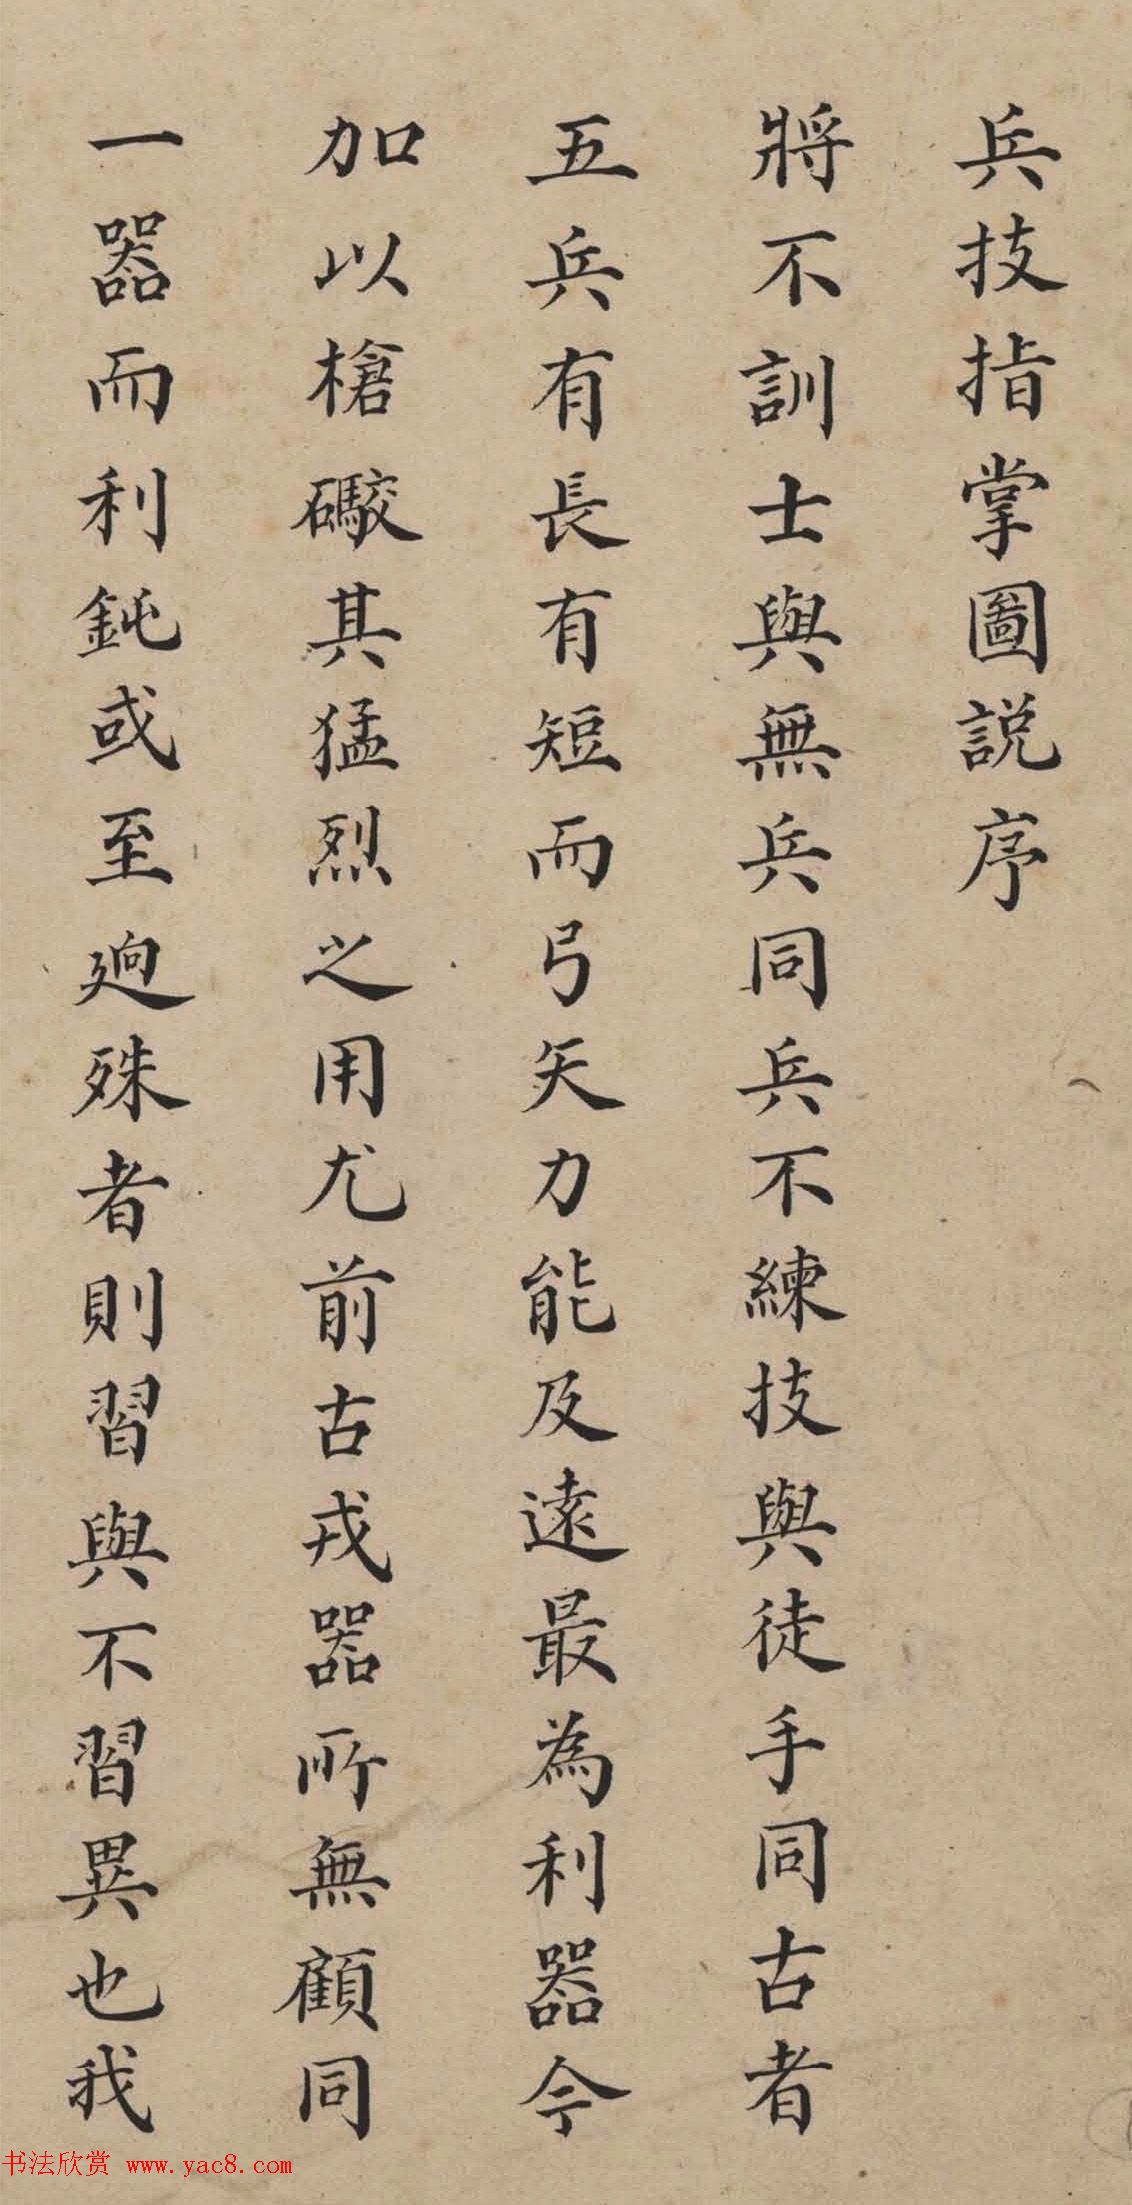 兵技指掌圖説序
將不訓士與無兵同兵不練技與徒手同古者
五兵有長有短而弓矢力能及遠最為利器今
加以槍礮其猛烈之用尤前古戎器所無顧同
一器而利鈍或至逈殊者則習與不習異也我
书法欣赏 www.yac8.com